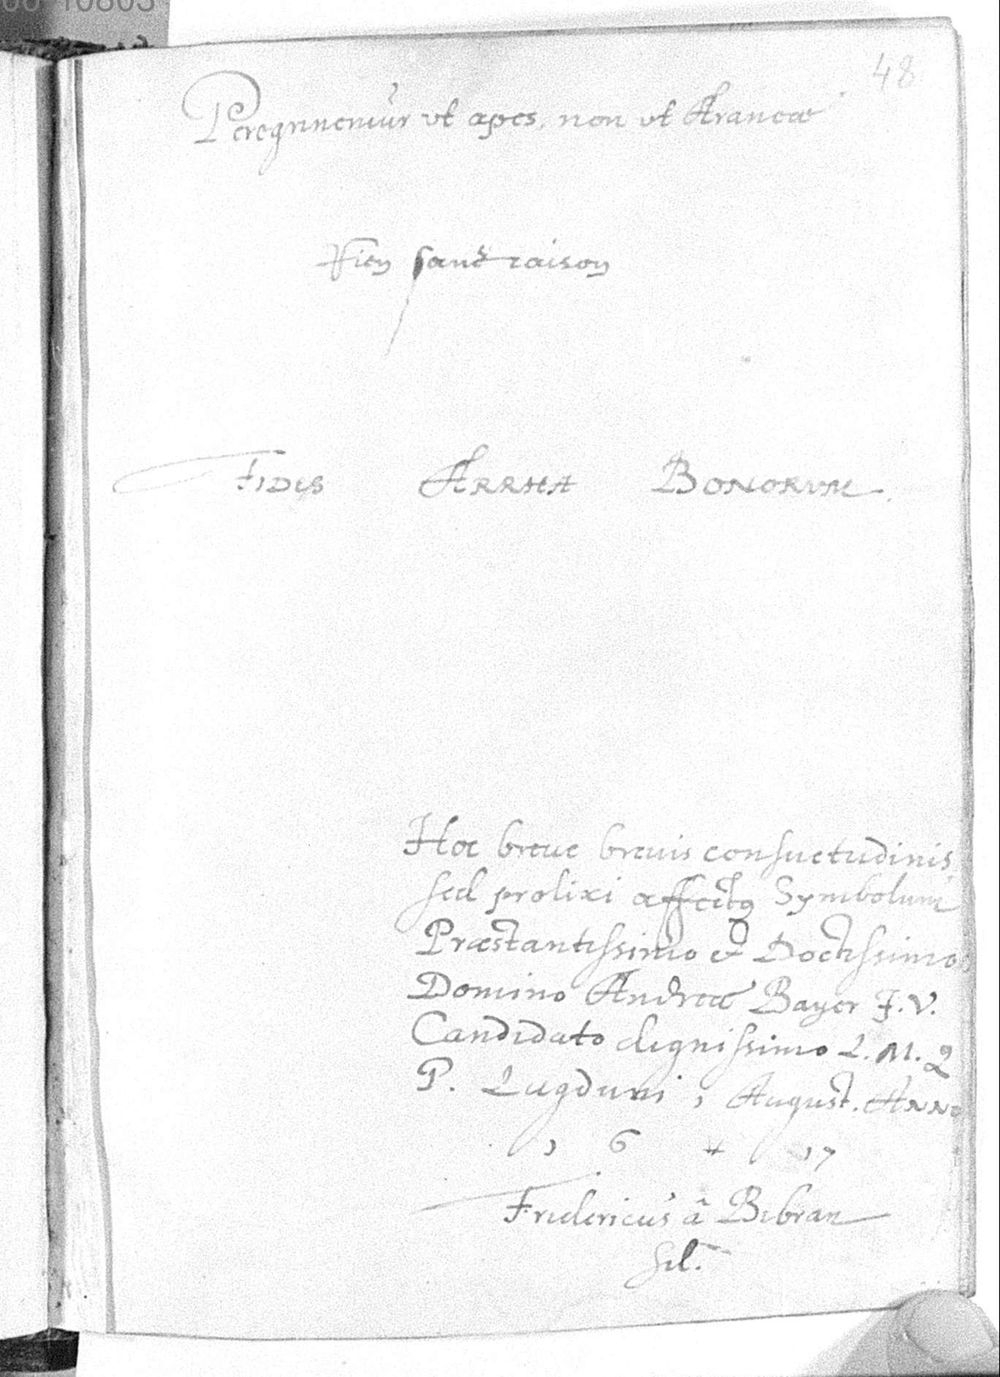 48
Peregrinemur vt apes, non vt Araneæ
Rien sans raison
FIDES ARRHA BONORVM.
Hoc breue breuis consuetudinis,
sed prolixi affectus Symbolum
Præstantissimo et Doctissimo
Domino Andreæ Bayer J. V.
Candidato dignissimo L. M. Q
P. Lugduni 1 August. Anno
1 6 17
Fridericus â Bibran
Sil.